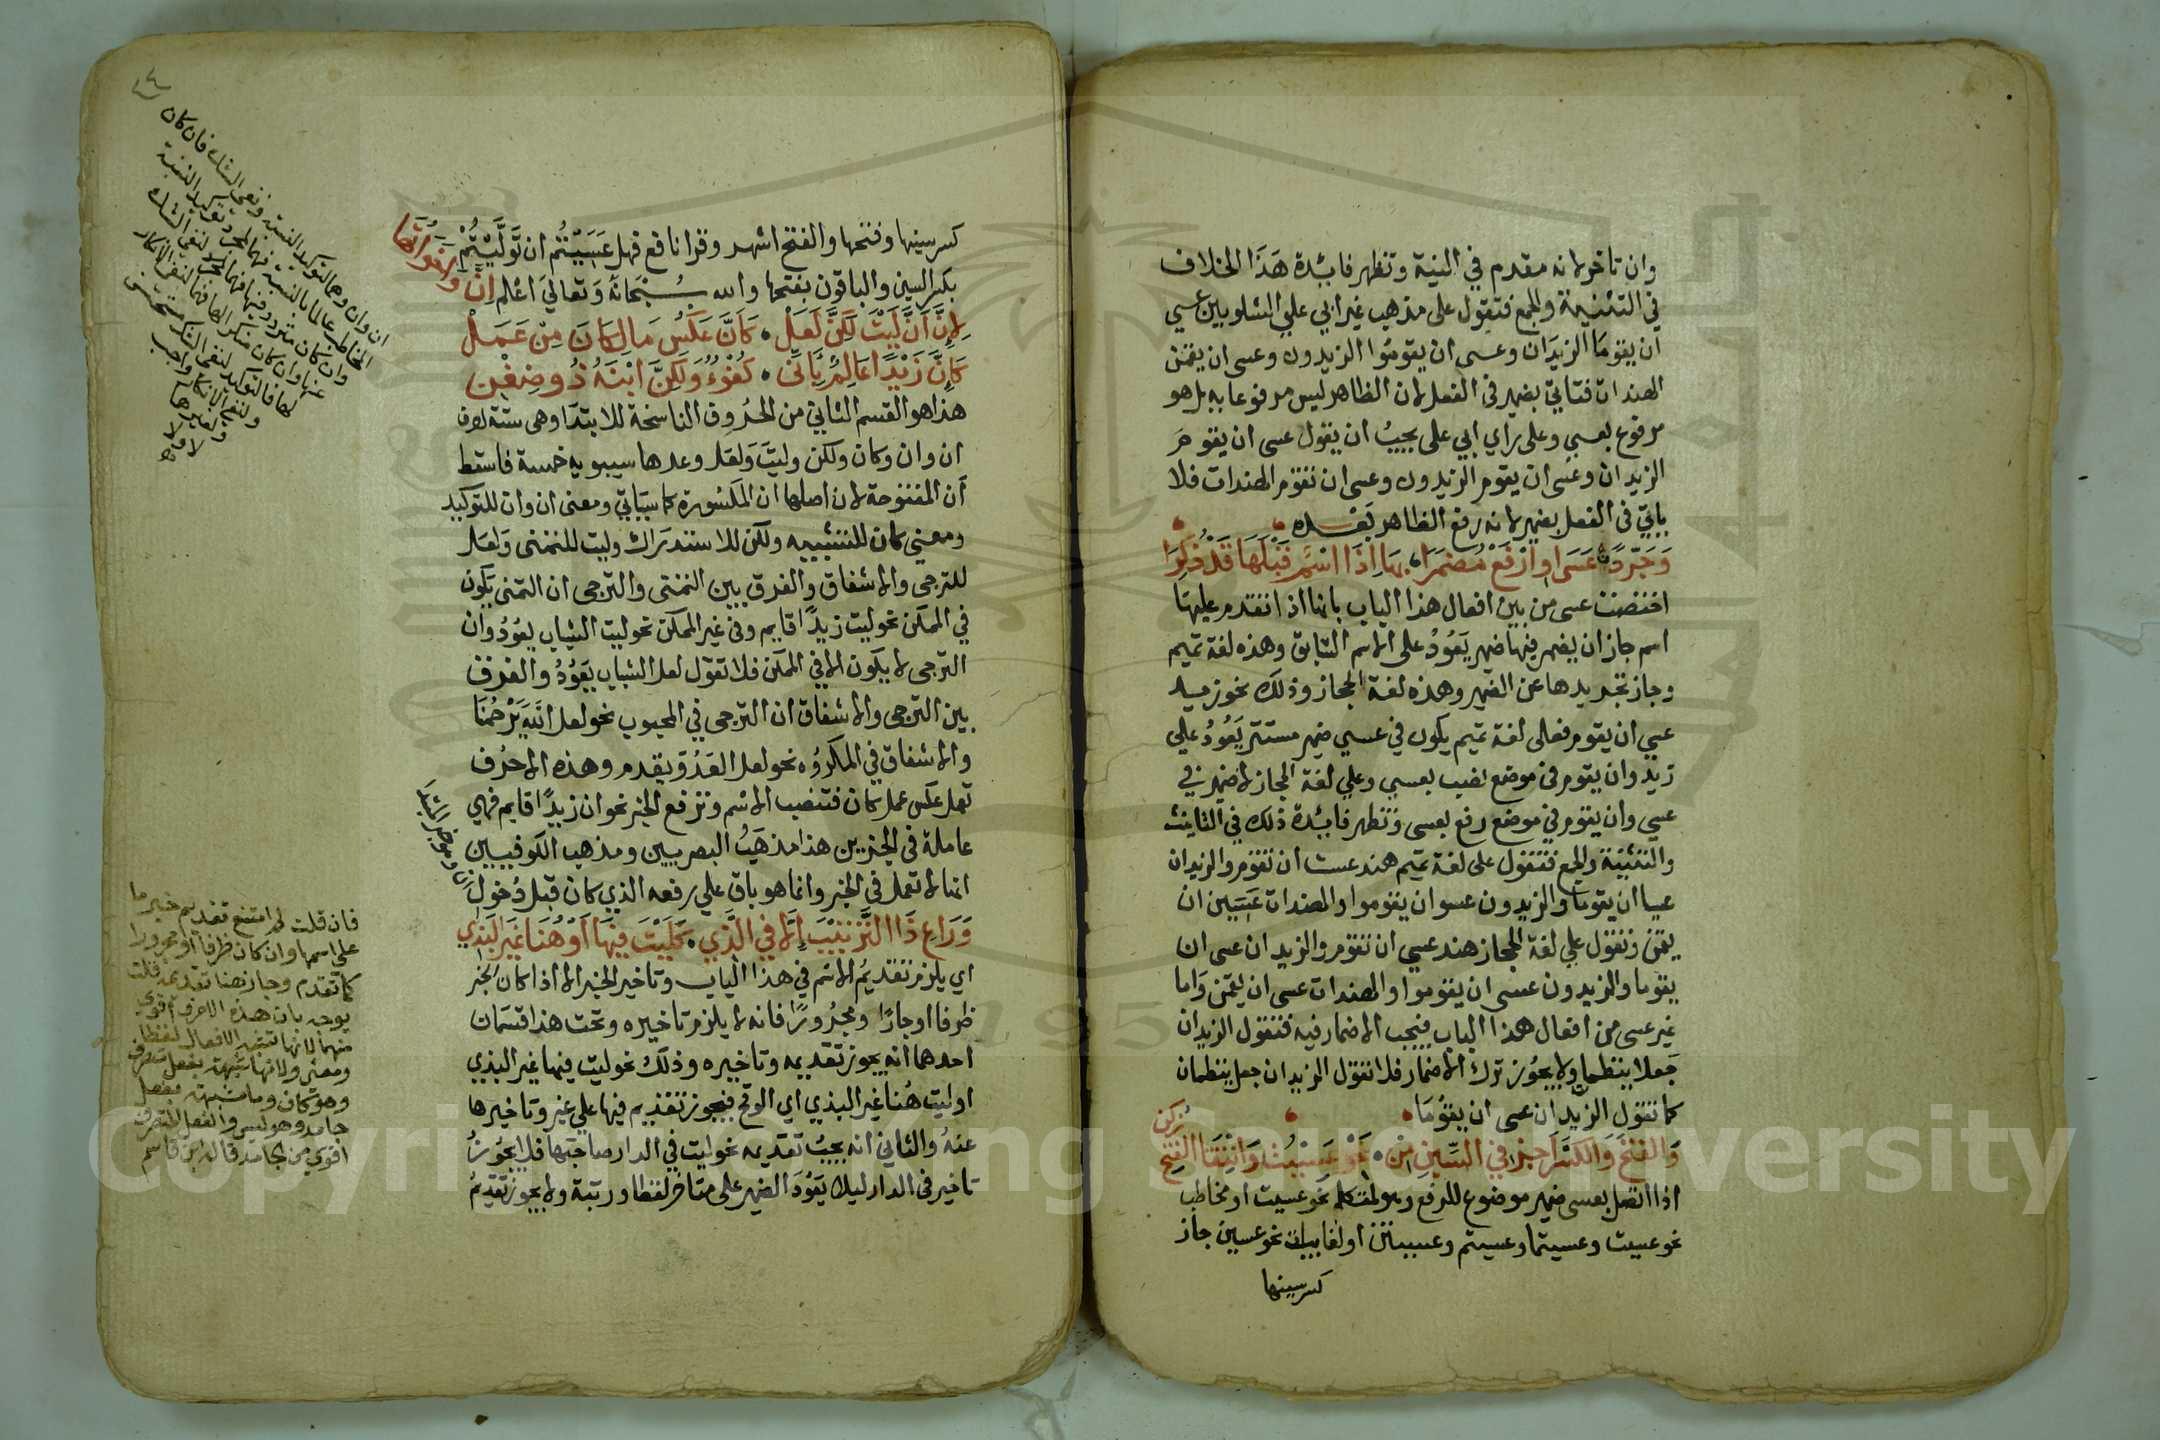 وان تاخر لانه مقدم في النية وتظهر فائدة هذا الخلاف
في التثنية والجمع فتقول على مذهب غير ابي علي الشلوبين عسي
ان يقوما الزيدان وعسى ان يقوموا الزيدون وعسى ان يقمن
الهندات فتاتي بضمير في الفعل لان الظاهر ليس مرفوعا به بل هو
مرفوع بعسي وعلى راي ابي على يجب ان يقول عسى ان يقوم
الزيدان وعسى ان يقوم الزيدون وعسى ان تقوم الهندات فلا
ياتي في الفعل بضمير لانه رفع الظاهر بعده
وَجَرِّدَنْ عَسَى اوارْفَعْ مُضْمَرَا بهَا اِذَا اسْمٌ قَبْلَهَا قَدْ ذُكِرَا
اختصت عسى من بين افعال هذا الباب بانها اذا تقدم عليها
اسم جاز ان يضمر فيها ضمير يَعُودُ على الاسم السابق وهذه لغة تميم
وجاز تجريدها عن الضمير وهذه لغة الحجاز وذلك نحو زيد
عسى ان يقوم فعلى لغة تميم يكون في عسي ضمير مستتر يَعُودُ علي
زيد وان يقوم في موضع نصب بعسى وعلي لغة الحجاز لا ضمير في
عسي وان يقوم في موضع رفع بعسى وتظهر فائدة ذلك في التانيث
والتثنية والجمع فتقول على لغة تميم هند عست ان تقوم والزيدان
عسيا ان يقوما والزيدون عسوا ن يقوموا والهندات عَسَين ان
يقمن وتقول علي لغة الحجاز هند عسي ان تقوم والزيدان عسى ان
يقوما والزيدون عسى ان يقوموا والهندات عسى ان يقمن واما
غير عسى من افعال هذا الباب فيجب الاضمار فيه فتقول الزيدان
جعلا ينظمان ولا يجوز ترك الاضمار فلا تقول الزيدان جعل ينظمان
كما تقول الزيدان عسى ان يقومَا
وَالفَتْحَ وَالكَسْرَ اَجِزْ في السِّينِ مِنْ نَحْوِ عَسَيْتُ وَانْتِقَا الفَتْحِ زُكِنْ
اذا اتصل بعسى ضمير موضوع للرفع وهو لمتكلم نحو عسيت او مخاطب
نحو عسيت وعسيتما وعسيتم وعسيتن او لغايبات نحو عسين جاز
كسر سينها
كسر سينها وفتحها والفتح اشهر وقرا نافع فهل عَسِيْتُم ان تَوَلَّيْتُمْ
بكسر السين والباقون بفتحها والله سُبْحَانَهُ وَتعَاليَ اَعْلم اِنَّ وَاخَوَاتُهَا
لِاِنَّ اَنَّ لَيْتَ لَكِنَّ لَعَلْ كَاَنَّ عَكْسُ مَا لِكَانَ مِنْ عَمَلْ
كَاِنَّ زَيْدًا عَالِمٌ بِاَنِّى كُفْوءٌ وَلَكِنَّ ابْنَهُ ذُو ضِغْنِ
هذا هو القسم الثاني من الحُروف الناسخة للابتدا وهى ستة احرف
ان وان وكان ولكن وليتَ وَلعَل وعدها سيبويه خمسة فاسقط
اَن المفتوحة لان اصلها ان المكسُورة كما سياتي ومعنى ان وان للتوكيد
ومعني كان للتشبيه ولكن للاستدراك وليت للتمنى وَلعَل
للترجى والاشفاق والفرق بين التمنى والترجى ان التمني يكون
في الممكن نحو ليت زيدًا قايم وفى غير الممكن نحو ليت الشباب يعُودُ وان
الترجى لا يكون الا في الممكن فلا تقول لعل الشباب يَعُودُ والفرق
بين الترجى والاشفاق ان الترجى في المحبوب نحو لعل اللهَ يَرْحَمُنَا
والاشفاق في المكرُوه نحو لعل العَدُوَّ يقدم وهذه الاحرُف
تعمل عكس عمل كان فتنصب الاسْم وترفع الخبر نحو ان زيدًا قايم فهى
عاملة في الجزءين هذا مذهَبُ البصريين ومذهب الكوفيين
انها لا تعمل في الخبر وانما هو باق علي رفعه الذي كان قبل دُخول
ان وهو خبر المبتدا
وَرَاعِ ذَا التَّرْتِيْبَ اِلَّا في الَّذِي كَلَيْتَ فِيْهَا اَوْ هُنَا غَيْرَ البَذِي
اي يلزم تقديمُ الاسْم في هذا الباب وتاخير الخبر الا اذا كان الخبر
ظرفا اوجارًا ومجرُورًا فانه لا يلزم تاخيره وتحت هذا قسمَان
احدهما انه يجوز تقديمه وتاخيره وذلك نحو ليت فيها غير البذي
اوليت هُنا غير البذي اي الوقح فيجوز تقديم فيها علي غير وتاخيرها
عنهُ والثاني انه يجبُ تقديمه نحو ليت في الدار صاحبَها فلا يجُوزُ
تاخير فى الدار ليلا يَعُودَ الضمير على متاخر لفظا ورتبة ولا يجوز تقديمُ
ان وان وهما لتوكيد النسبة ونفى الشك فان كان
المخاطب عالما بالنسبة فهما لمجرد توكيد النسبة
وان كان مترددا فيها فهما لنفى الشك
عنها وان كان منكرا لها فهما لنفى الانكار
لها فالتوكيد لنفى الشك مستحسن
ولنفي الانكار واجب
ولغيرهما
لا ولا
فان قلت لم امتنع تقديم خبر ما
على اسمها وان كان ظرفا او مجرورا
كما تقدم وجاز هنا تقديمه قلت
يوجه بان هذه الاحرف اقوى
منها لانها تشبه الافعال لفظا
ومعنى ولانها شبهت بفعل متصرف
وهو كان وما شبهت بفعل
جامد وهو ليس والفعل المتصرف
اقوي من الجامد قاله ابن قاسم
Copyright © King Saud University
1957